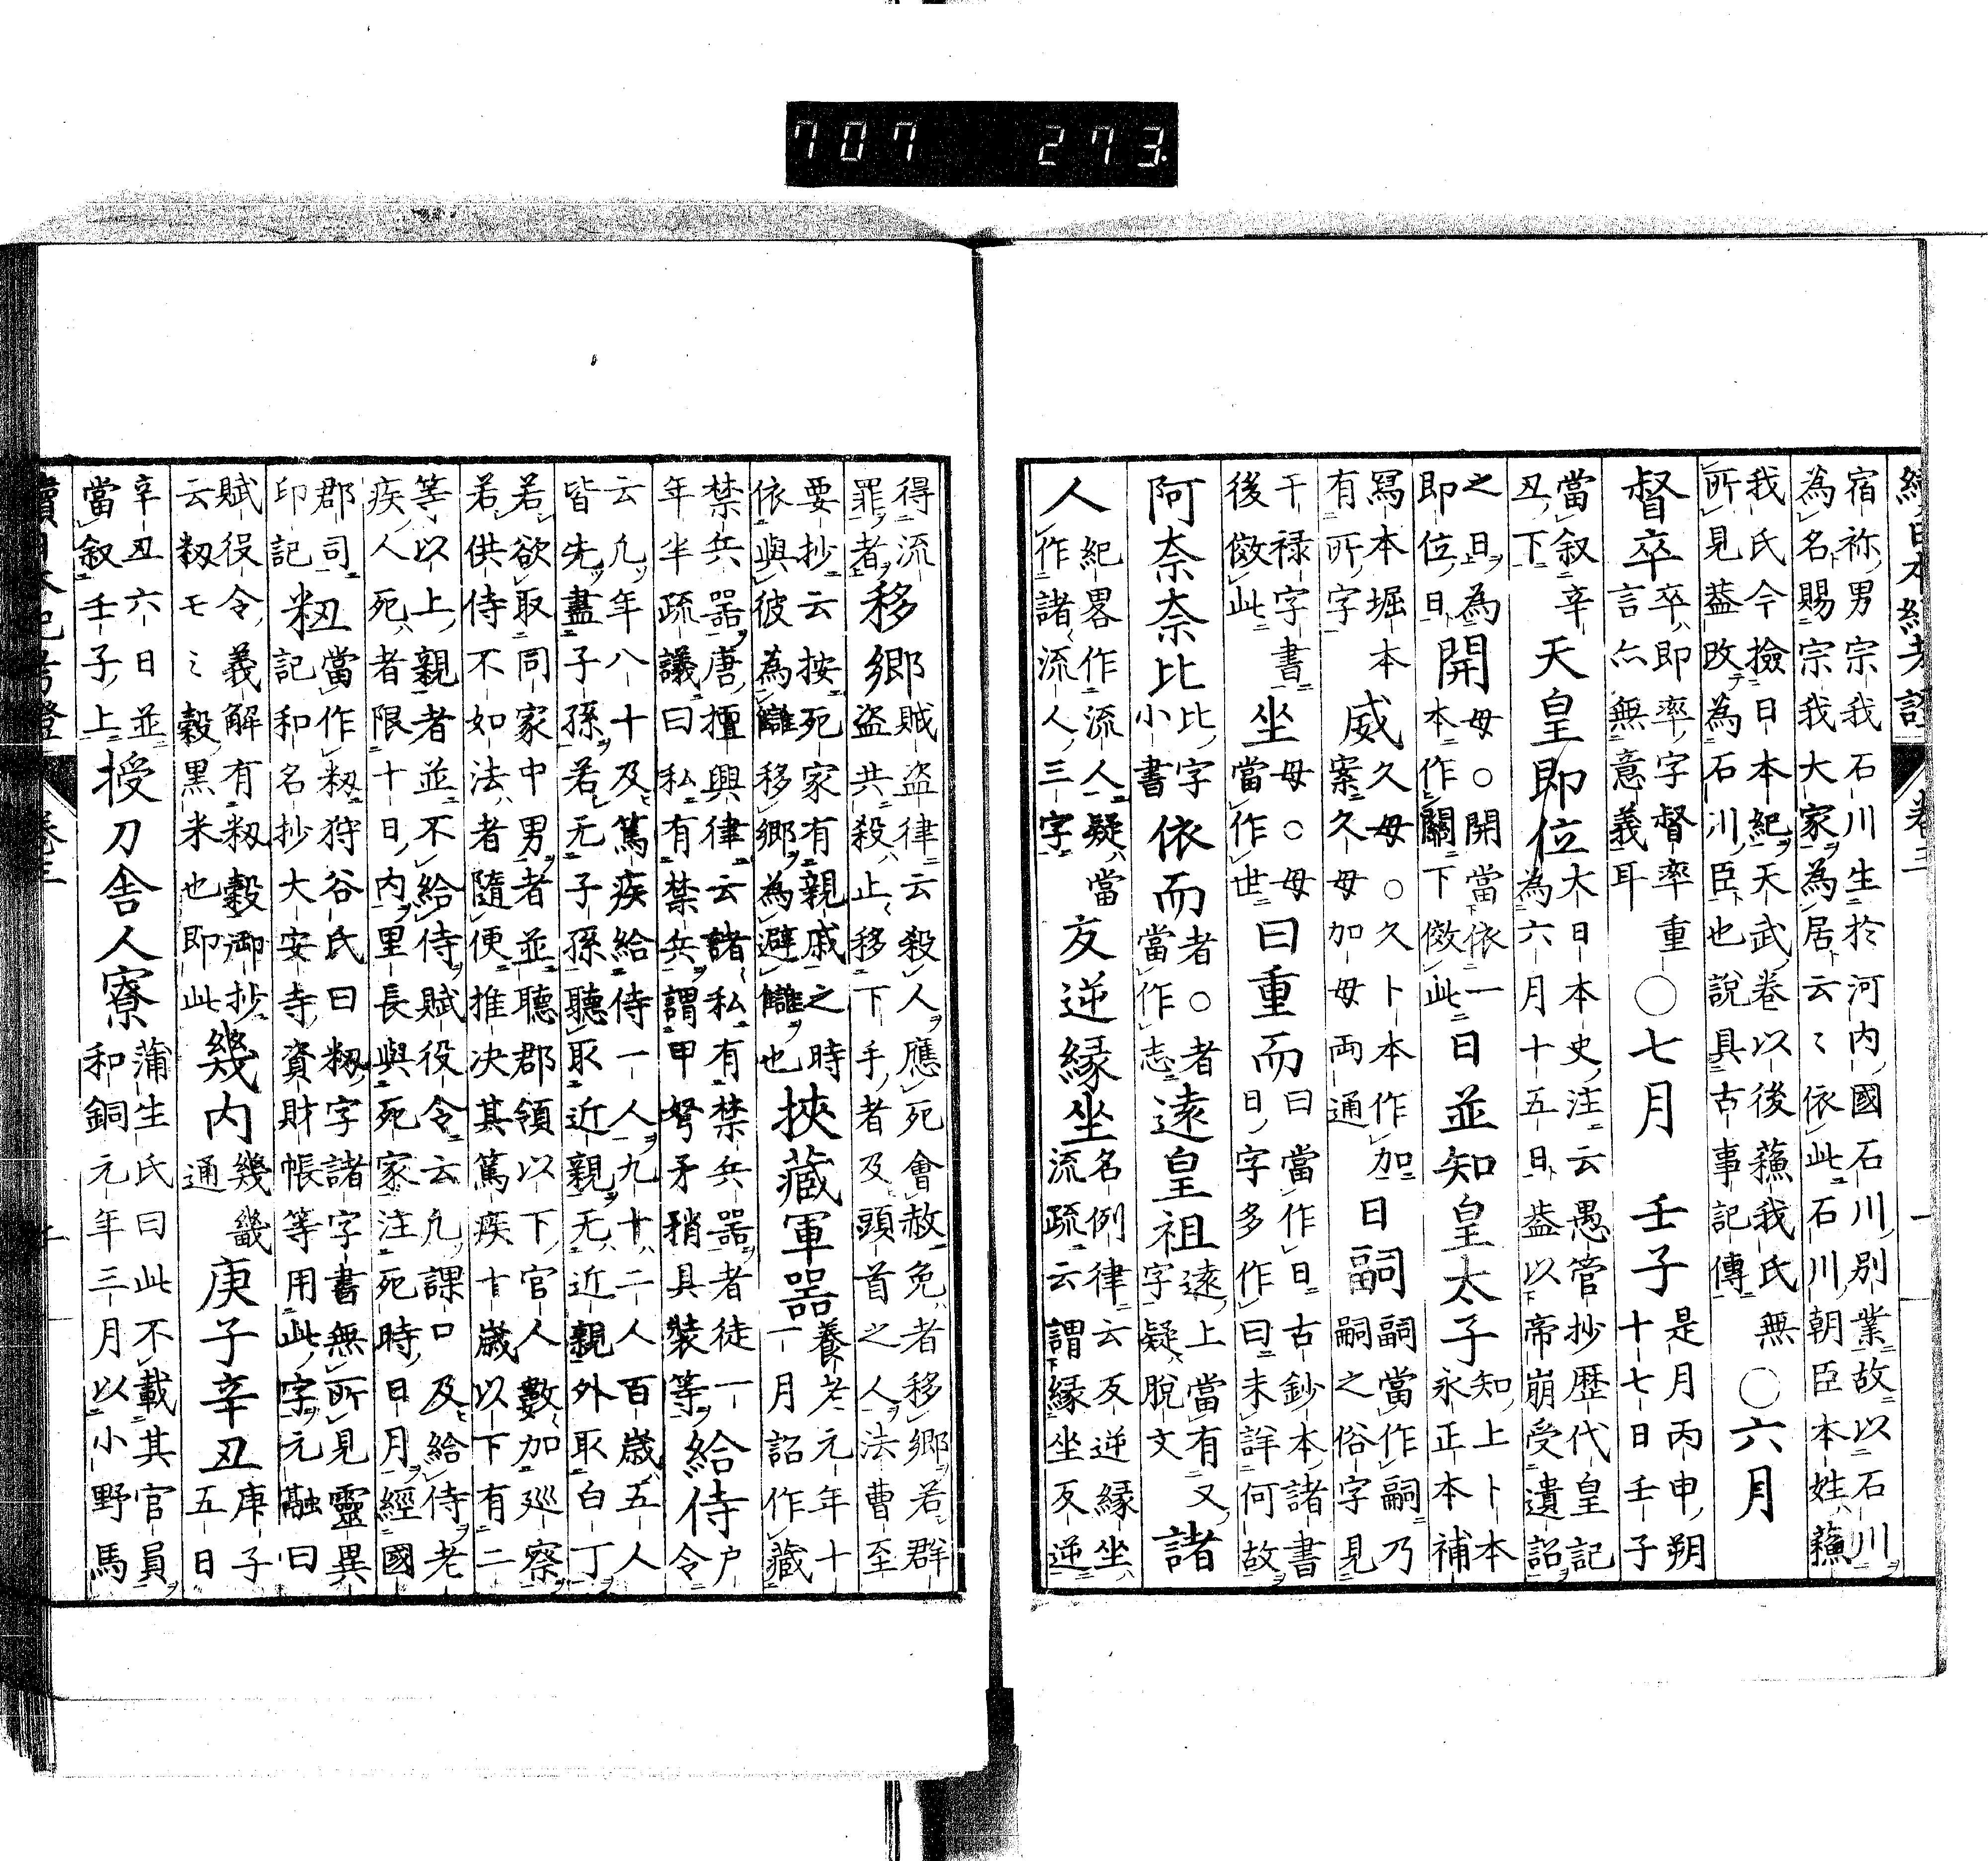 續日本紀考證 卷三 一
宿祢男宗我石川生於河内國石川別業故以石川
為名賜宗我大家為居云〻依此石川朝臣本姓蘓
我氏今撿日本紀天武卷以後蘓我氏無
所見葢改為石川臣也說具古事記傳 ○六月
督卒 卒即率字督率重
言亦無意義耳 ○七月 壬子 是月丙申朔
十七日壬子
當叙辛
丑下 天皇即位 大日本史注云愚管抄歴代皇記
為六月十五日葢以帝崩受遺詔
之日為
即位日 開 母○開當依一
本作關下倣此 日並知皇太子 知上卜本
永正本補
冩本堀本
有所字 威 久母○久卜本作加
案久母加母両通 日嗣 嗣當作嗣乃
嗣之俗字見
干禄字書
後倣此 坐 母○母
當作世 曰重而 曰當作日古鈔本諸書
日字多作曰未詳何故
阿奈奈比 比字
小書 依而 者○者
當作志 遠皇祖 遠上當有又
字疑脫文 諸
人 紀畧作流人疑當
作諸流人三字 友逆縁坐 名例律云反逆縁坐
流疏云謂縁坐反逆
得流
罪者 移郷 賊盗律云殺人應死會赦免者移郷若群
盗共殺止移下手者及頭首之人法曹至
要抄云按死家有親戚之時
依與彼為讎移郷為避讎也 挾藏軍器 養老元年十
一月詔作藏
禁兵器唐擅興律云諸私有禁兵器者徒一
年半疏議曰私有禁兵謂甲弩矛矟具裝等 給侍 户
令
云凡年八十及篤疾給侍一人九十二人百歳五人
皆先盡子孫若无子孫聽取近親无近親外取白丁
若欲取同家中男者並聽郡領以下官人數加巡察
若供侍不如法者隨便推决其篤疾十歳以下有二
等以上親者並不給侍賦役令云凡課口及給侍老
疾人死者限十日内里長與死家注死時日月經國
郡司
印記 籾 當作籾狩谷氏曰籾字諸字書無所見靈異
記和名抄大安寺資財帳等用此字元融曰
賦役令義解有籾穀御抄
云籾モ〻穀黒米也即此 幾内 幾畿
通 庚子辛丑 庚子
五日
辛丑六日並
當叙壬子上 授刀舎人寮 蒲生氏曰此不載其官員
和銅元年三月以小野馬
續日本紀考證 卷三